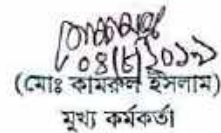 ০৪/৮/২০১৯
(মোঃ কামরুল ইসলাম)
মুখ্য কর্মকর্তা